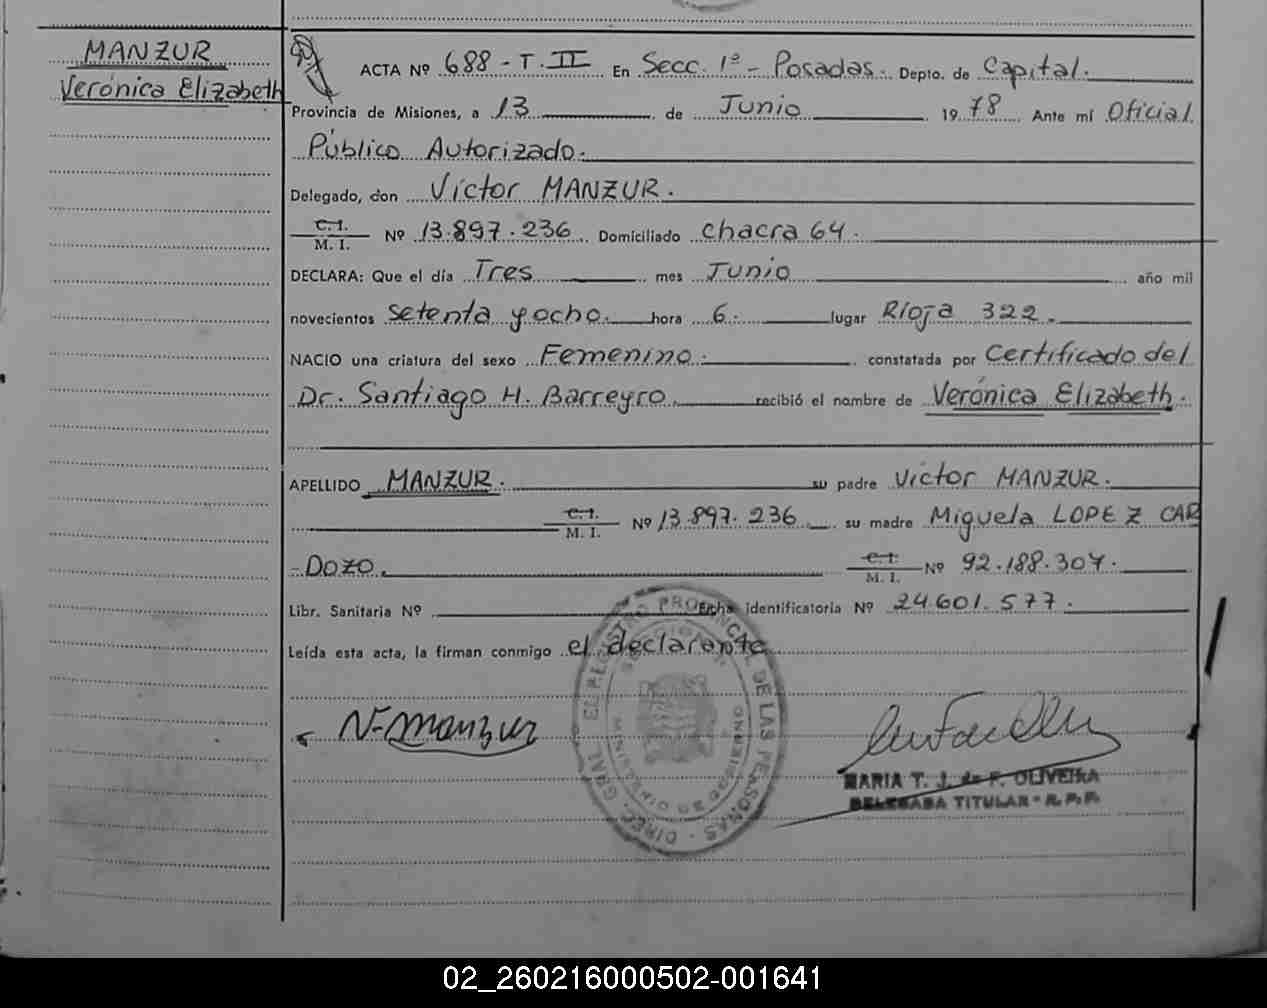 MANZUR
Verónica Elizabeth
ACTA Nº 688 - T. II En Secc. 1ª - Posadas. Depto. de Capital.
Provincia de Misiones, a 13 de Junio 19 78 Ante mí Oficial
Público Autorizado.
Delegado, don Víctor MANZUR.
C. I.
M. I. Nº 13.897.236 Domiciliado chacra 64.
DECLARA: Que el día Tres mes Junio año mil
novecientos setenta y ocho. hora 6. lugar Rioja 322.
NACIO una criatura del sexo Femenino. constatada por Certificado del
Dr. Santiago H. Barreyro. recibió el nombre de Verónica Elizabeth.
APELLIDO MANZUR. su padre Víctor MANZUR.
C. I.
M. I. Nº 13.897.236 su madre Miguela LOPEZ CAR
-DOZO. C. I.
M. I. Nº 92.188.307.
Libr. Sanitaria Nº Ficha identificatoria Nº 24601.577.
Leída esta acta, la firman conmigo el declarante
Manzur
DIREC. GRAL. EL REGISTRO PROVINCIAL DE LAS PERSONAS
MARIA T. J. de F. OLIVEIRA
DELEGADA TITULAR - R. P. P.
02_260216000502-001641